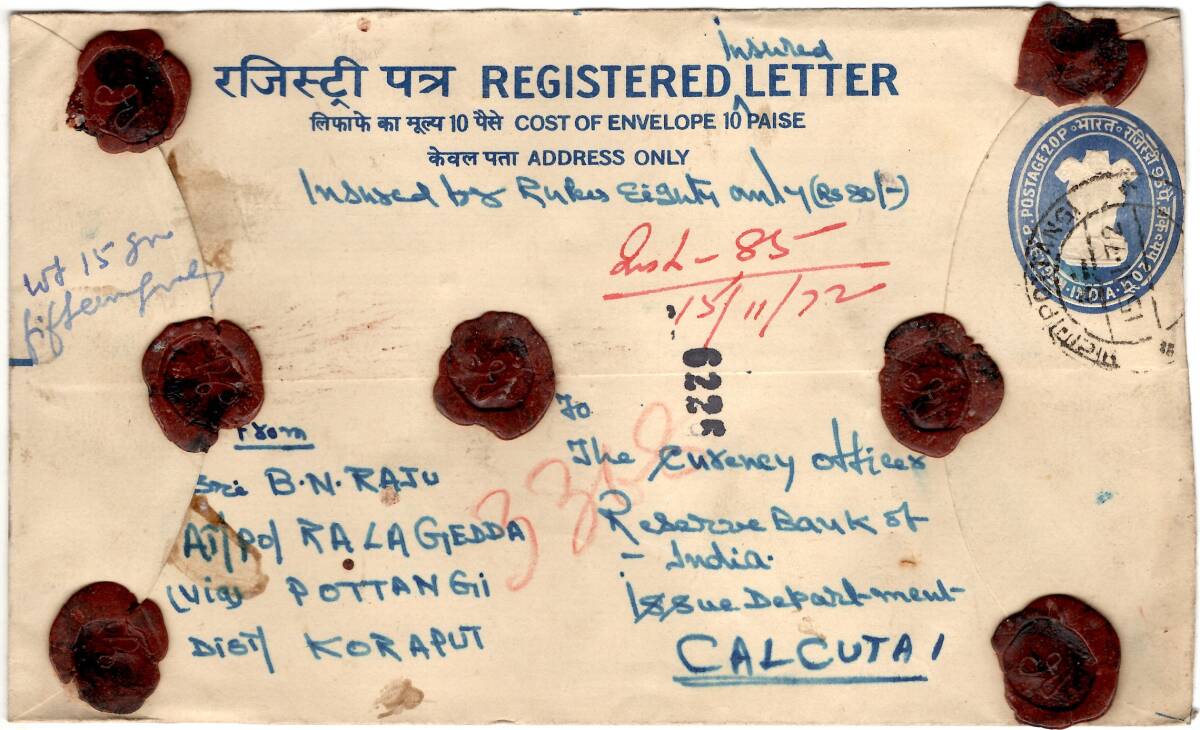 Insured
रजिस्ट्री पत्र REGISTERED LETTER
लिफाफे का मूल्य 10 पैसे COST OF ENVELOPE 10 PAISE
केवल पता ADDRESS ONLY
Insured by Rupees Eighty only (Rs 80/-)
wt 15 gm
85
15/11/72
6226
From
Sri B.N. RAJU
At/Po/ RALAGEDDA
(Via) POTTANGI
Dist/ KORAPUT
To
The Currency officer
Reserve Bank of
- India.
Issue Depart-ment-
CALCUTA 1